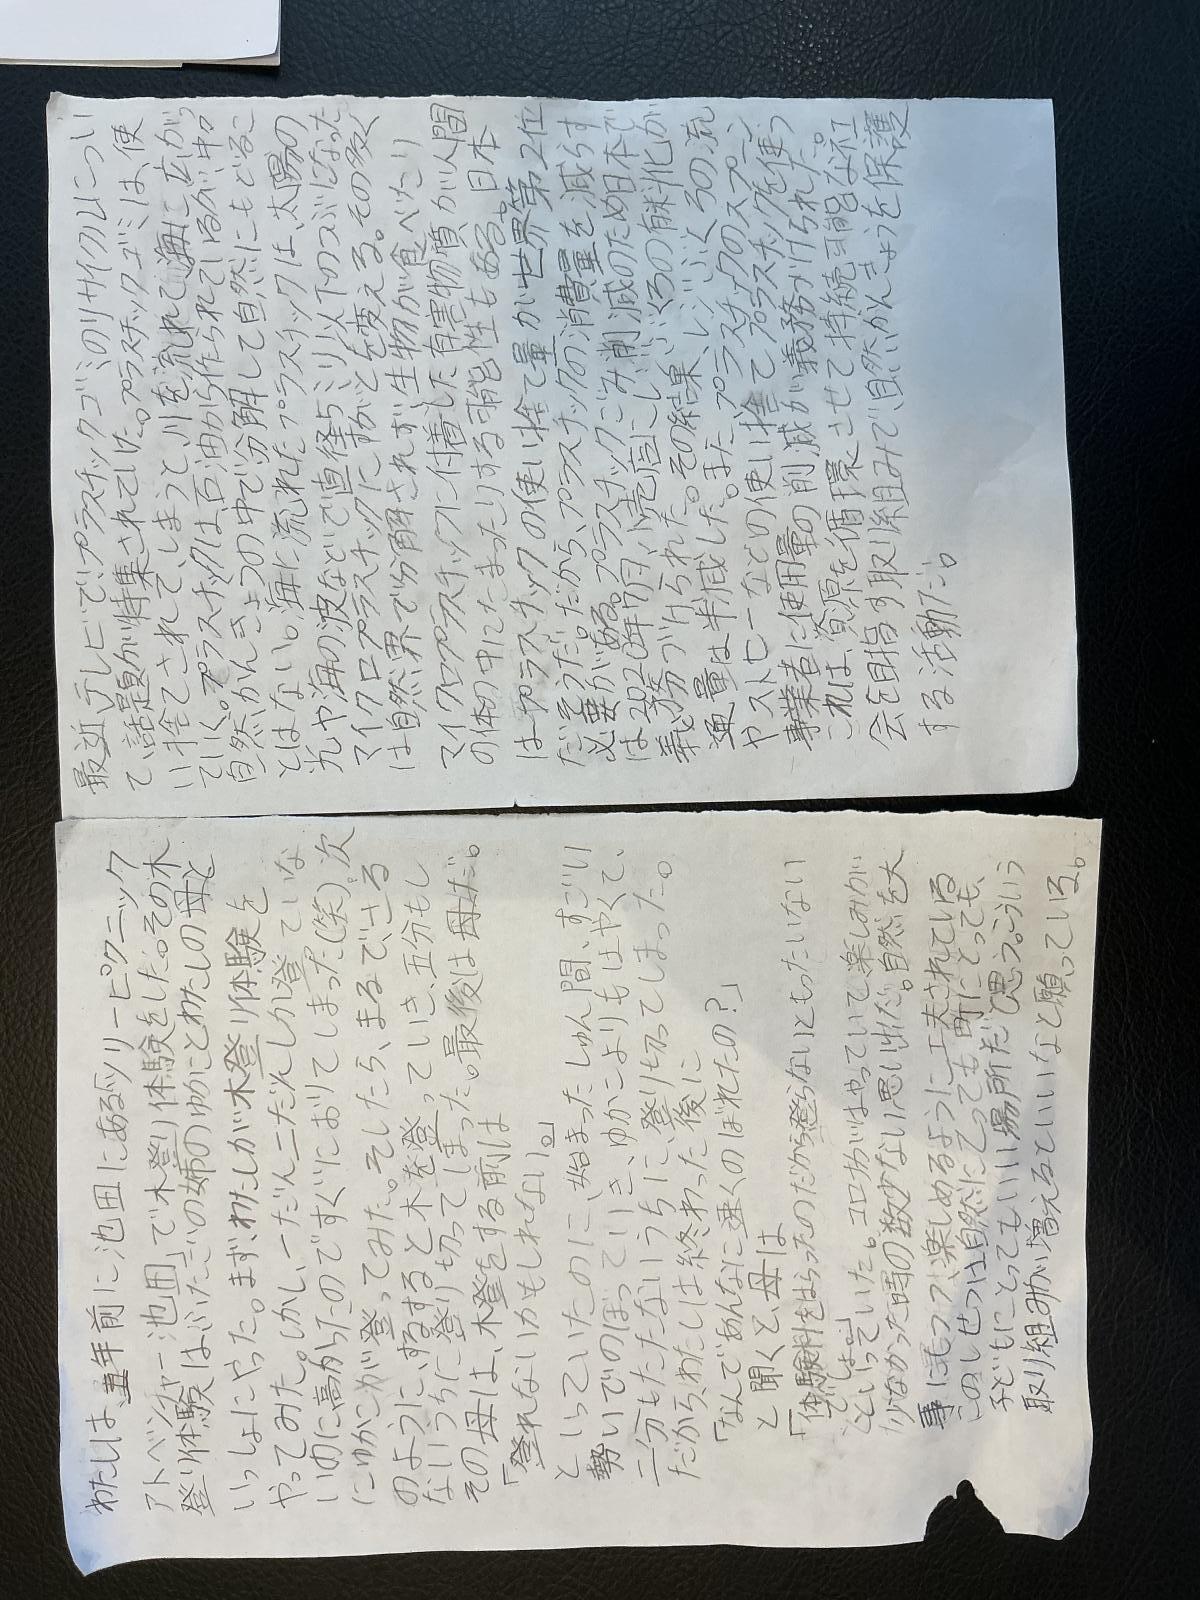 最近、テレビで、プラスチックゴミのリサイクルについ
て、話題が特集されていた。プラスチックゴミは、使
い捨てされてしまうと、川を流れて海に広がっ
ていく。プラスチックは、石油から作られているが、中。
自然かんきょうの中で分解して自然にもどるこ
とはない。海に流れたプラスチックは、太陽の
光や海の波などで直径5ミリ以下のつぶになった
マイクロプラスチックにすがたを変える。その多く
は自然界で分解されず、生物が食べたり
マイクロプラスチックに付着した有害物質が人間
の体の中にたまったりする可能性もある。日本
はプラスチックの使い捨て量が世界第2位
だそうだ。だから、プラスチックの消費量を減らす
必要がある。プラスチックごみ削減のため日本で
は2020年7月、小売店にレジぶくろの有料化が
義務づけられた。その結果、レジぶくろの流
通量は半減した。また、プラスチックのスプーン
やストローなどの使い捨てプラスチックを使う
事業者に使用量の削減が義務づけられた。
これは、資源を循環させて持続可能な社
会を目指す取り組みで、自然かんきょうを保護
する活動だ。
わたしは、五年前に池田にある「ツリーピクニック
アドベンチャー池田」で木登り体験をした。その木
登り体験はふたごの姉のゆかことわたしの母と
いっしょにやった。まず、わたしが木登り体験を
やってみた。しかし、一だん二だんしか登っていな
いのに高かったのですぐにおりてしまった(笑)。次
にゆかこが登ってみた。そしたら、まるで、さる
のように、するすると木を登っていき、五分もし
ないうちに登り切ってしまった。最後は母だ。
その母は、木登をする前は
「登れないかもしれない。」
といっていたのに、始まったしゅん間、すごい
勢いでのぼっていき、ゆかこよりもはやくて、
二分もたたないうちに登り切ってしまった。
だから、わたしは終わった後に
「なんであんなに速くのぼれたの？」
と聞くと、母は
「体験料をはらったのだから登らないともったいない
でしょ。」
といっていた。コロナがはやっていて楽しみが
少なかった時の数少ない思い出だ。自然を大
事にしつつ、楽しめるように工夫されている
このしせつは自然にとっても町にとっても、
子どもにとってもいい場所だと思う。こういう
取り組みが増えるといいなと願っている。